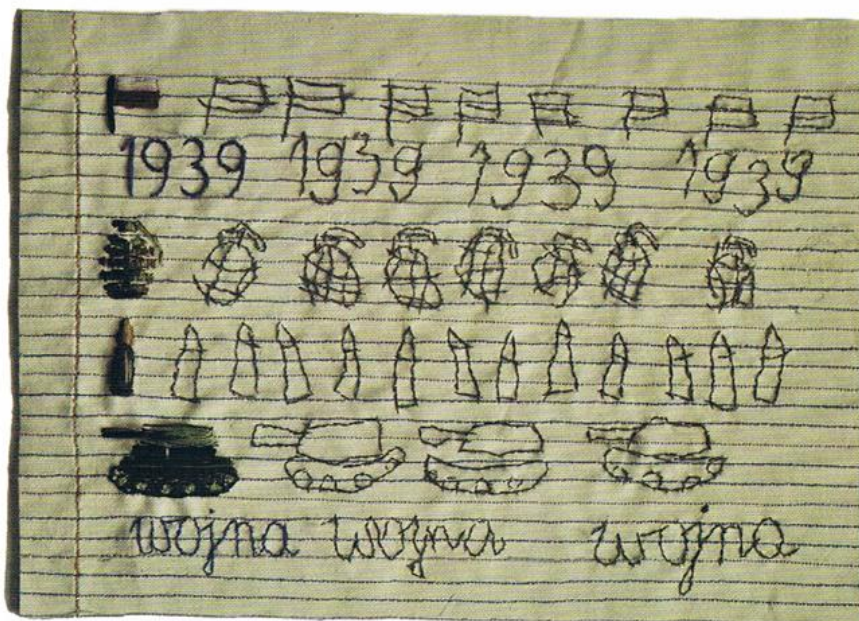 1939 1939 1939 1939
wojna wojna wojna